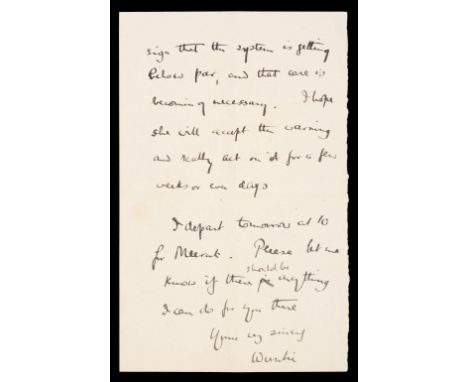 sign that the system is getting
below par, and that care is
becoming necessary. I hope
she will accept the warning
and really act on it for a few
weeks or even days
I depart tomorrow at 10
for Meerut. Please let me
should be
know if there is anything
I can do for you there
Yours very sincerely